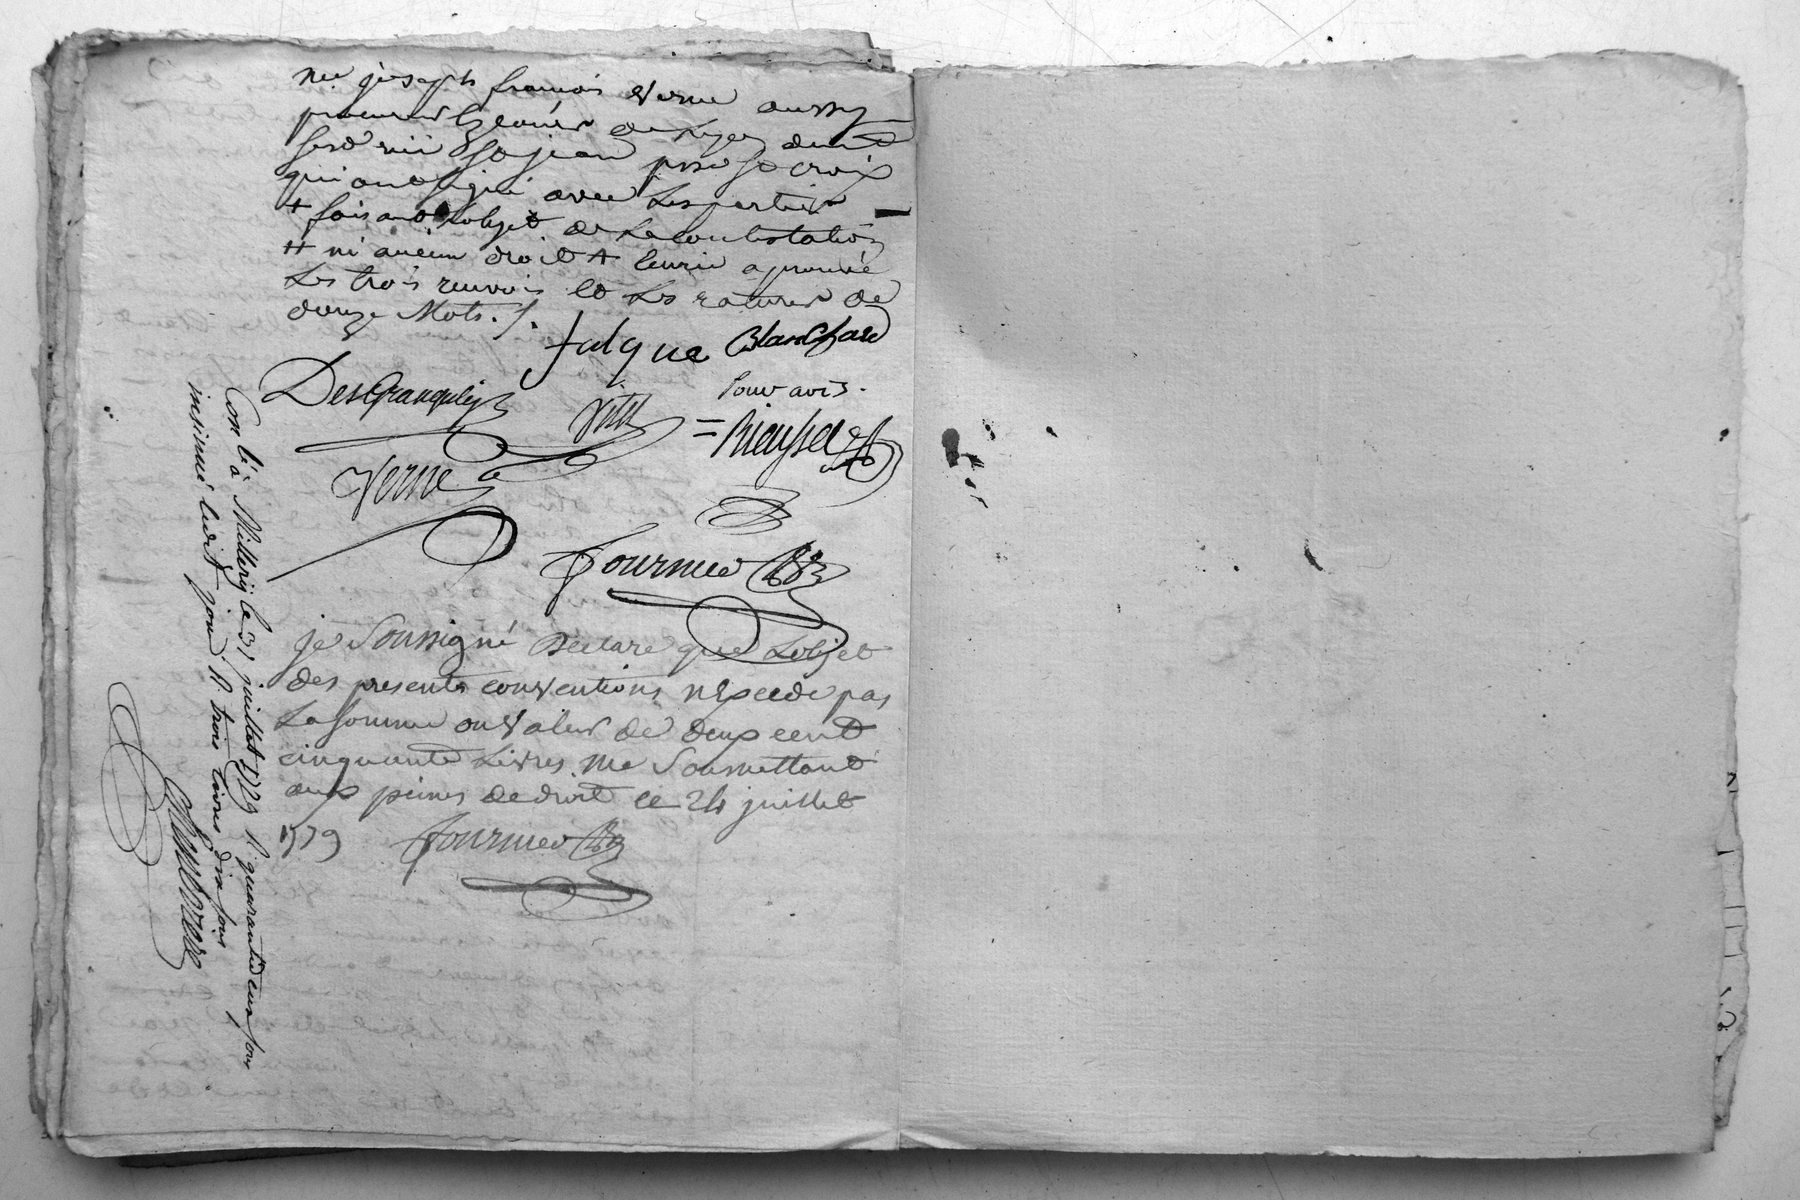 me joseph francois verne aussy
procureur
st jean st croix
qui ont signé avec les parties
+ faisant lobjet de la contestation
++ ni aucun droit aprouvé
les trois renvois et les ratures de
douze mots ./.
falque Blanchard
Pour avis.
DesGranges
Vitte
Verne
fournier
je soussigné declare que lobjet
des presents conventions nexcede pas
la somme ou valeur de deux cent
cinquante livres me soumettant
aux peines de droit ce 24 juillet
1779 fournier
Con lé à Millery le 31 juillet 1779 R. quarante deux sous
insinué ledit jour R. trois livres dix sous